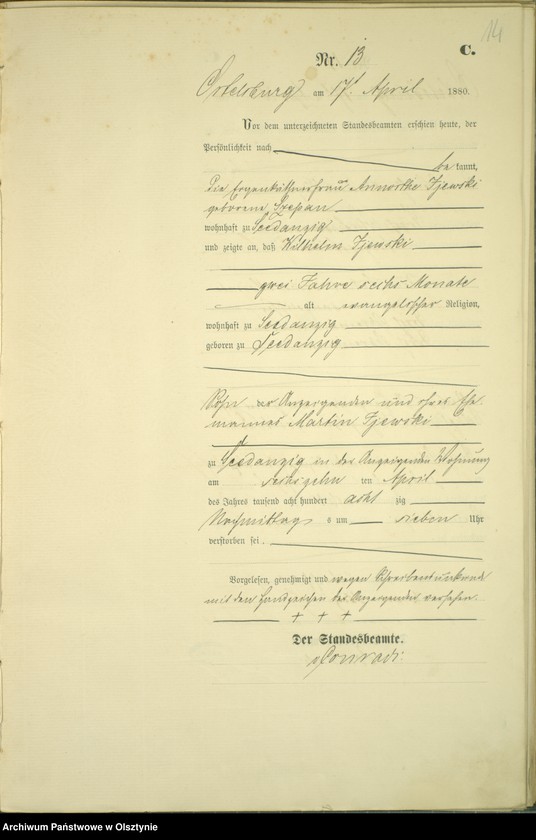 14
C.
Nr. 13
Ortelsburg am 17t April 1880.
Vor dem unterzeichneten Standesbeamten erschien heute, der
Persönlichkeit nach
be kannt,
die Eigenkäthnerfrau Annortha Zjewski
geborene Szepan
wohnhaft zu Seedanzig
und zeigte an, daß Wilhelm Zjewski
zwei Jahre sechs Monate
alt evangelischer Religion,
wohnhaft zu Seedanzig
geboren zu Seedanzig
Sohn der Anzeigenden und ihres Ehe
mannes Martin Zjewski
zu Seedanzig in der Anzeigenden Wohnung
am sechszehn ten April
des Jahres tausend acht hundert acht zig
Nachmittags um sieben Uhr
verstorben sei.
Vorgelesen, genehmigt und wegen Schreibensunkunde
mit dem Handzeichen der Anzeigenden versehen.
+ + +
Der Standesbeamte.
Conradi.
Archiwum Państwowe w Olsztynie